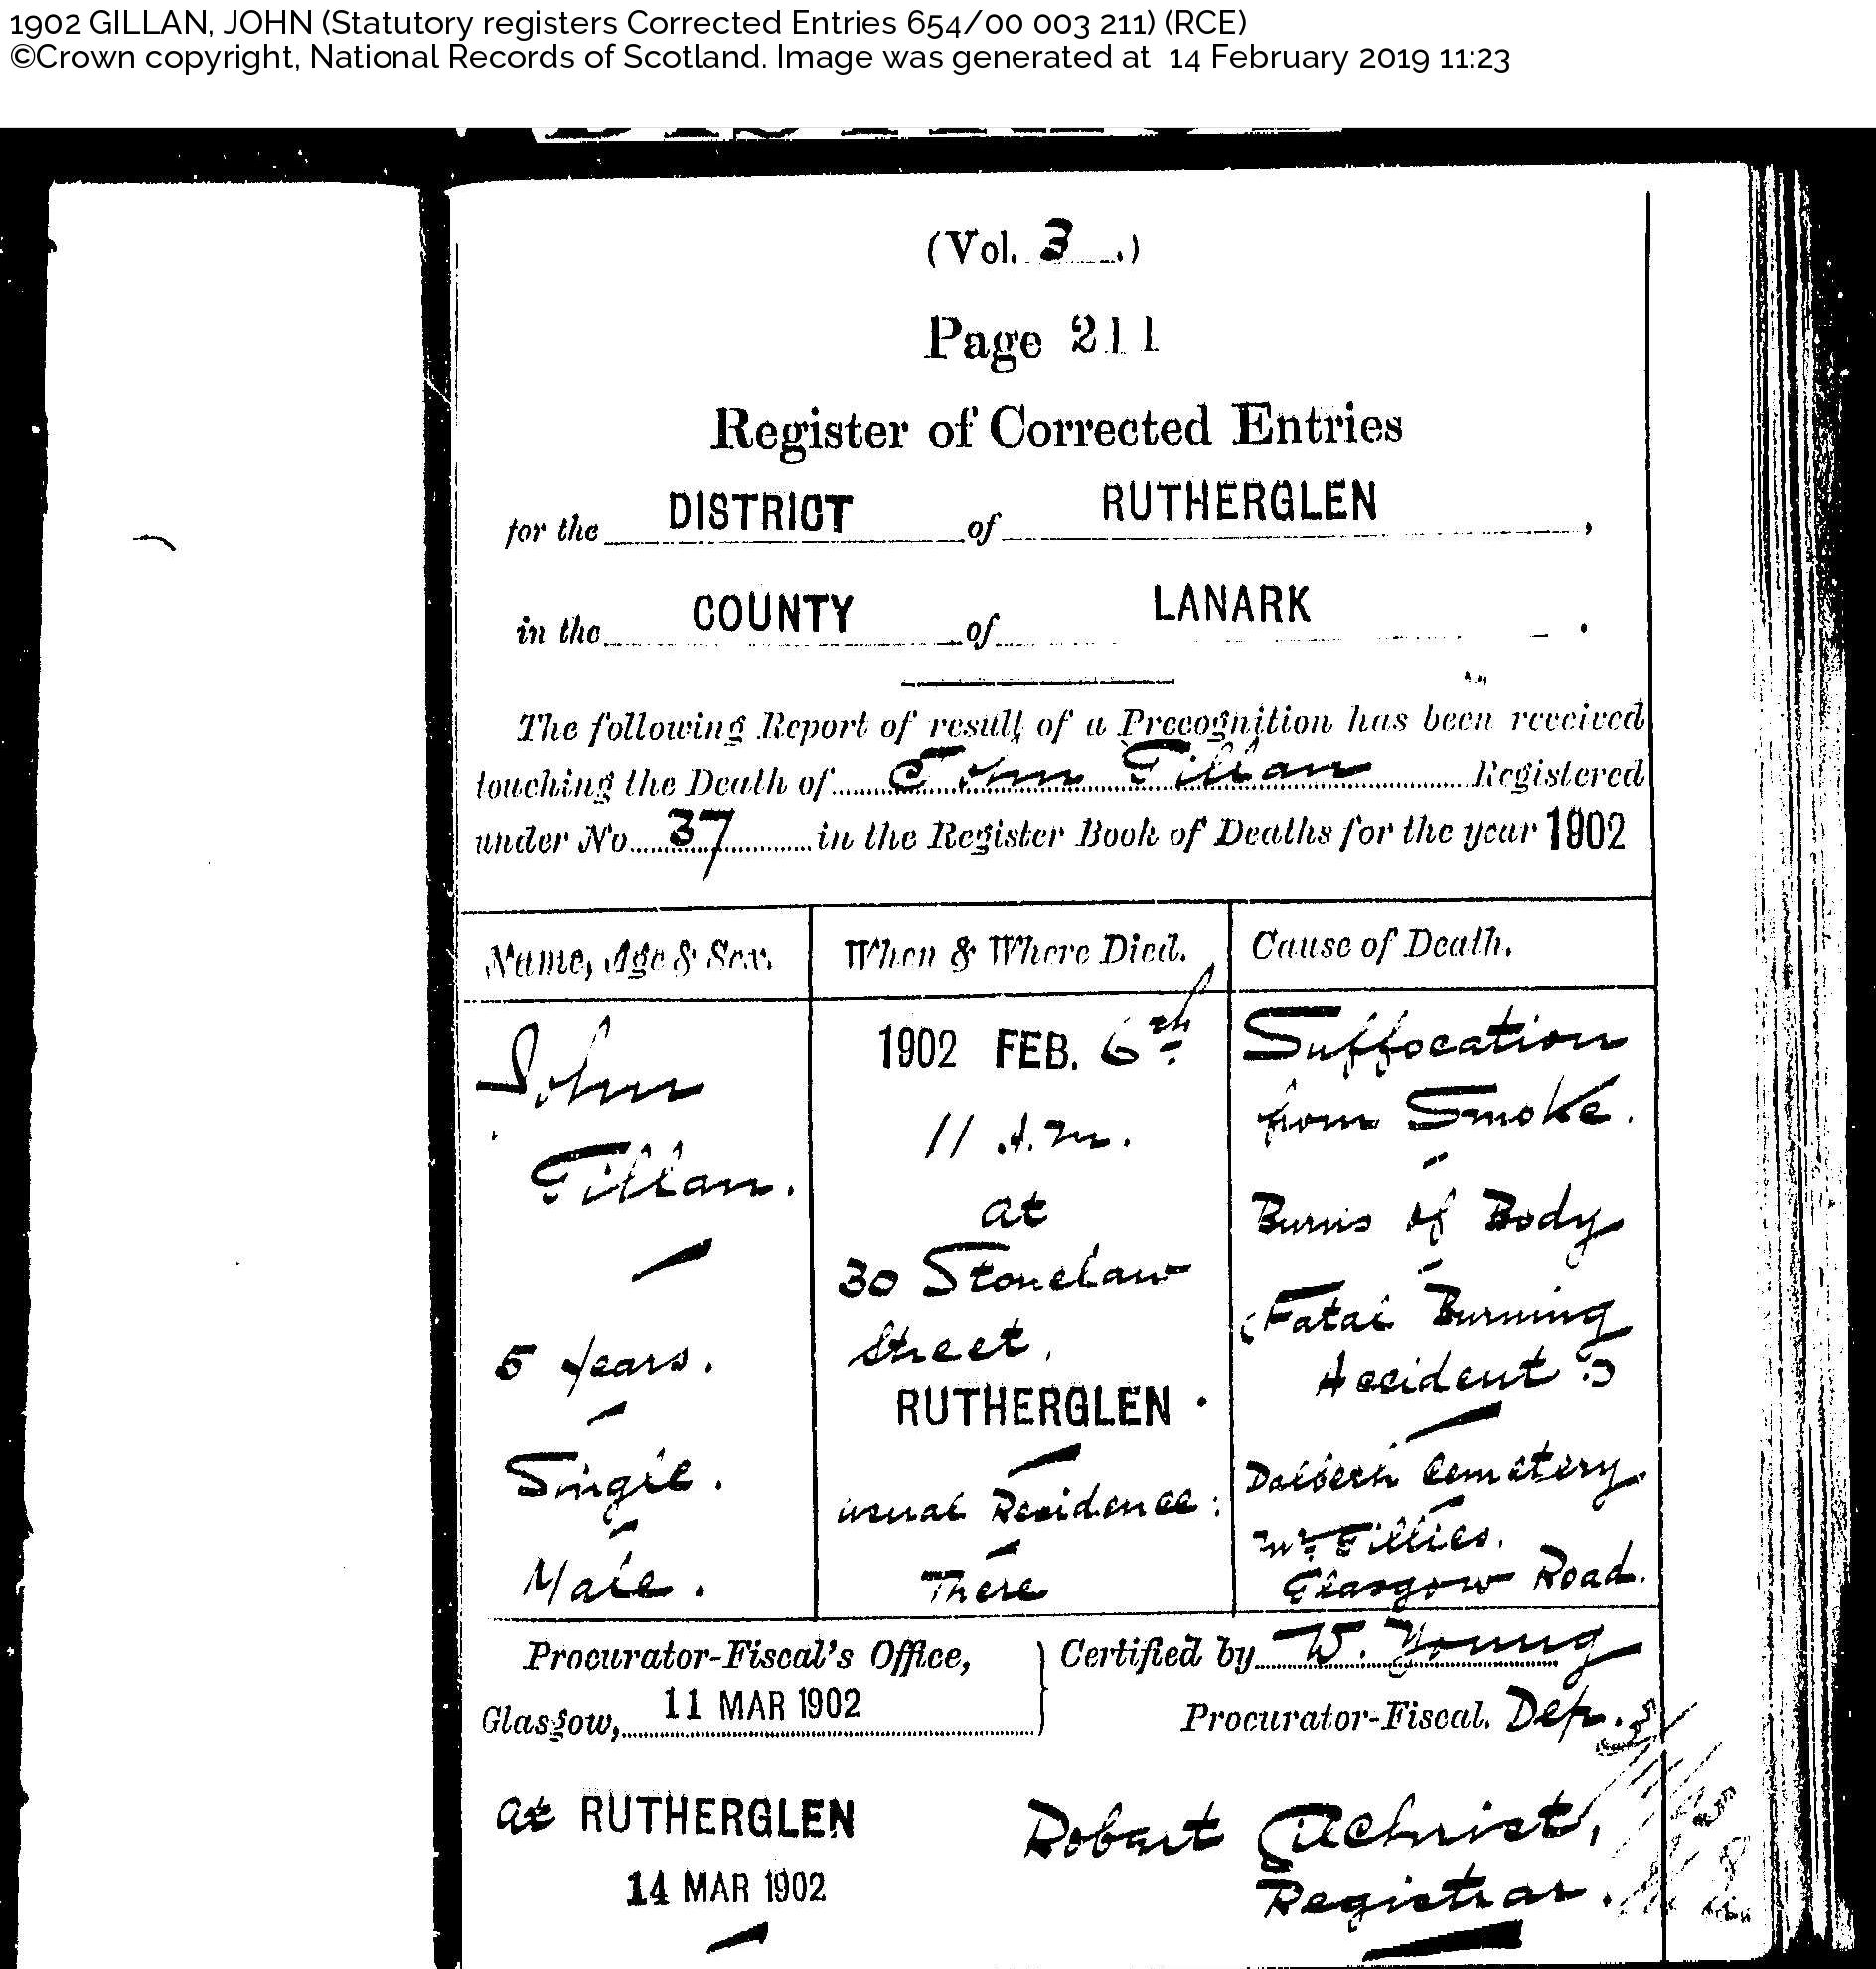 1902 GILLAN, JOHN (Statutory registers Corrected Entries 654/00 003 211) (RCE)
©Crown copyright, National Records of Scotland. Image was generated at 14 February 2019 11:23
(Vol. 3 .)
Page 211
Register of Corrected Entries
for the DISTRICT of RUTHERGLEN,
in the COUNTY of LANARK.
The following Report of result of a Precognition has been received
touching the Death of John Gillan Registered
under No 37 in the Register Book of Deaths for the year 1902
Name, Age & Sex. When & Where Died. Cause of Death.
John
Gillan.
5 Years.
Single.
Male.
1902 FEB. 6th
11 A.M.
at
30 Stonelaw
Street,
RUTHERGLEN.
usual Residence:
There
Suffocation
from Smoke.
Burns of Body
(Fatal Burning
Accident?)
Dalbeth Cemetery.
Mr. Gillies.
Glasgow Road.
Procurator-Fiscal's Office, Certified by W. Young
Glasgow, 11 MAR 1902 Procurator-Fiscal. Dep.
at RUTHERGLEN
14 MAR 1902
Robert Gilchrist,
Registrar.